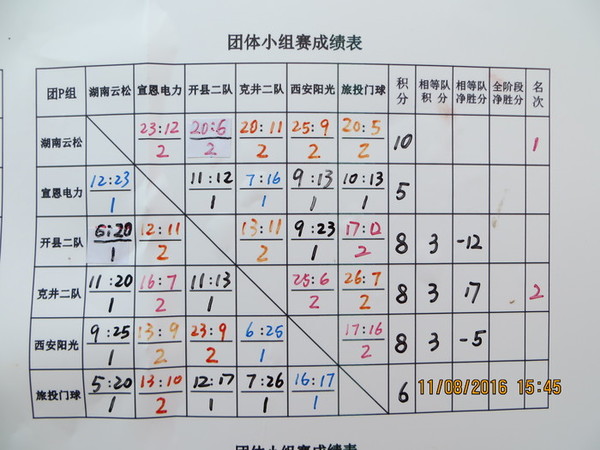 团体小组赛成绩表
团P组 湖南云松 宣恩电力 开县二队 克井二队 西安阳光 旅投门球 积分 相等队积分 相等队净胜分 全阶段净胜分 名次
湖南云松 23:12 20:6 20:11 25:9 20:5
2 2 2 2 2 10 1
宣恩电力 12:23 11:12 7:16 9:13 10:13
1 1 1 1 1 5
开县二队 6:20 12:11 13:11 9:23 17:12
1 2 2 1 2 8 3 -12
克井二队 11:20 16:7 11:13 25:6 26:7
1 2 1 2 2 8 3 17 2
西安阳光 9:25 13:9 23:9 6:25 17:16
1 2 2 1 2 8 3 -5
旅投门球 5:20 13:10 12:17 7:26 16:17
1 2 1 1 1 6
11/08/2016 15:45